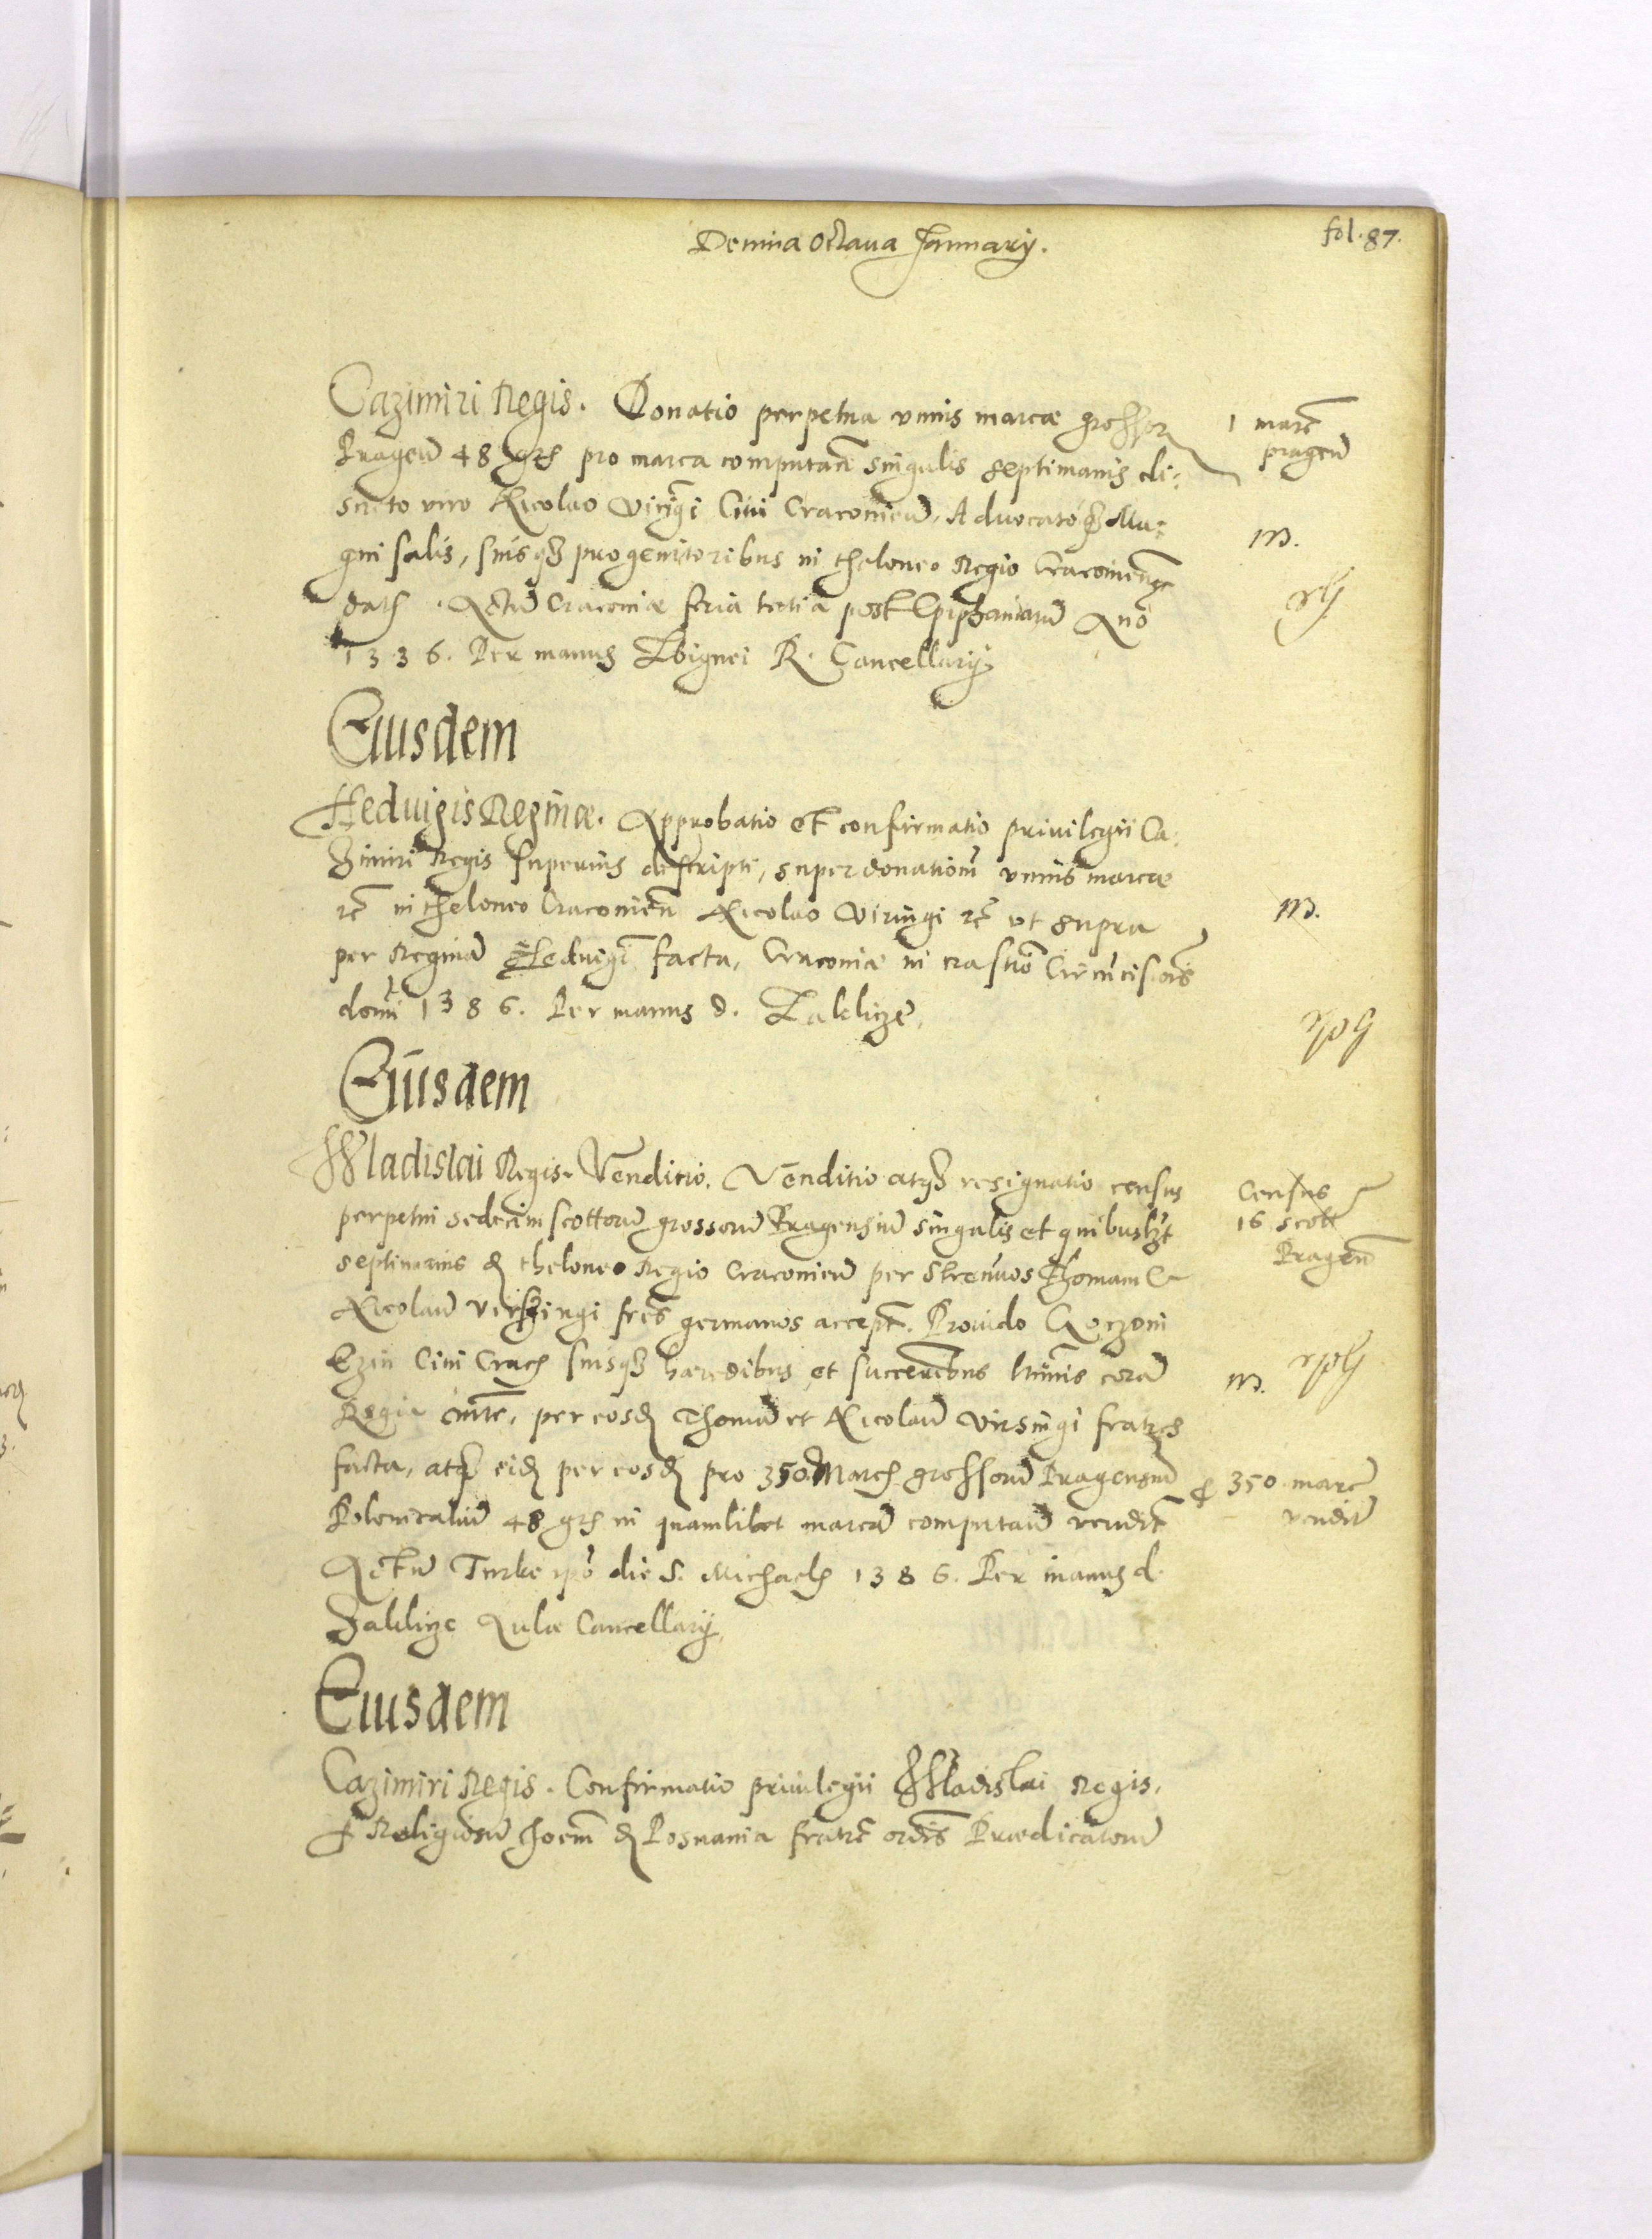 Decima Octaua Januarij.
fol. 87.
Cazimiri Regis. Donatio perpetua vnius marcae grossor
Pragen 48 grs pro marca computan singulis septimanis di:
screto viro Nicolao Viringi Ciui Cracouien, Aduocatoq3 Ma:
gni salis, suisq3 progenitoribus in theloneo Regio Cracouien
dats. Actu Cracouiae feria tertia post Epiphaniaru Ano
1336. Per manus Zbignei R. Cancellarij
1 marc
pragen
m.
Eiusdem
Heduigis Reginae. Approbatio et confirmatio priuilegii Ca:
zimiri Regis superius descripti, super donationem vnius marcae
rc in theloneo Cracouien Nicolao Viringi rc vt supra
per Regina Heduigi facta, Cracouiae in crastino Circucisiois
domi 1386. Per manus d. Zaklicze,
m.
Eiusdem
Wladislai Regis. Venditio. Venditio atq3 resignatio census
perpetui sedecim scottoru grossoru Pragensiu singulis et quibuslzt
septimanis de theloneo Regio Cracouien per strenuos Thomam et
Nicolau versingi fres germanos accept. Prouido Gorzoni
Ezin Ciui Crac suisq3 haeredibus et succeribus ltimis cora
Regia mte, per eosd Thoma et Nicolau Virsingi fratres
facta, atq3 eid per eosd pro 350 March grossoru Pragensiu
Polonicaliu 48 grs in quamlibet marca computan vendit
Actu Turke ipo die S. Michaels 1386. Per manus d.
Zaklicze Aulae Cancellarij,
Census
16 scott
Pragen
m.
p 350 marc
vendit
Eiusdem
Cazimiri Regis. Confirmatio priuilegii Wladislai Regis,
p Religiosu Ihoem de Posnania fratre ordis Praedicatoru